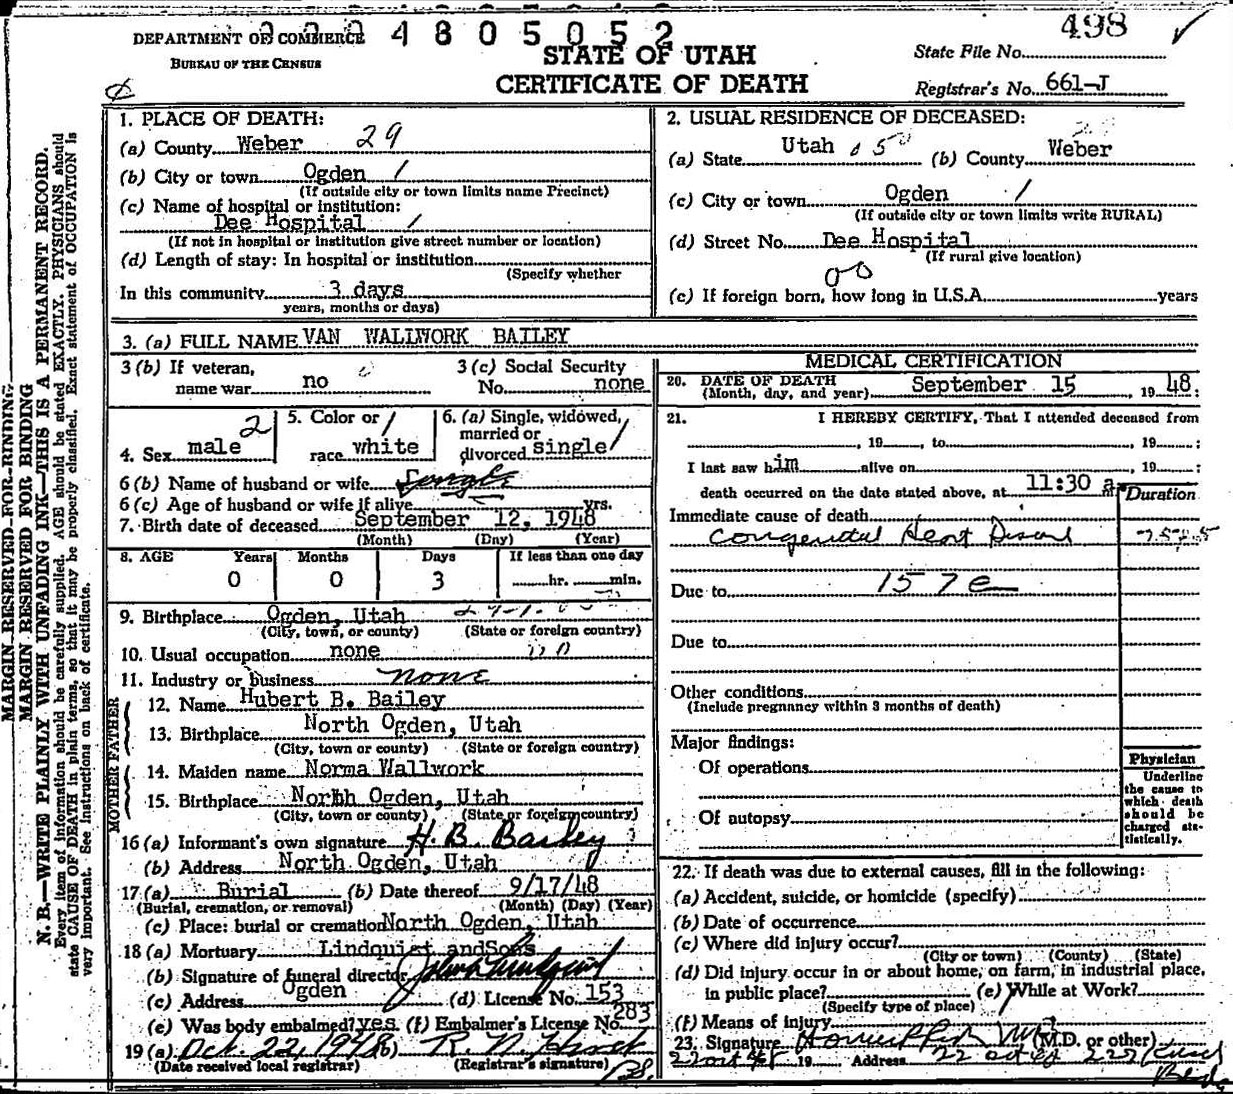 DEPARTMENT OF COMMERCE
BUREAU OF THE CENSUS
4805052
STATE OF UTAH
CERTIFICATE OF DEATH
State File No. 498
Registrar's No. 661-J
MARGIN RESERVED FOR BINDING
MARGIN RESERVED FOR BINDING
N. B.—WRITE PLAINLY WITH UNFADING INK—THIS IS A PERMANENT RECORD.
Every item of information should be carefully supplied. AGE should be stated EXACTLY. PHYSICIANS should
state CAUSE OF DEATH in plain terms, so that it may be properly classified. Exact statement of OCCUPATION is
very important. See instructions on back of certificate.
1. PLACE OF DEATH:
(a) County Weber 29
(b) City or town Ogden /
(If outside city or town limits name Precinct)
(c) Name of hospital or institution:
Dee Hospital /
(If not in hospital or institution give street number or location)
(d) Length of stay: In hospital or institution
(Specify whether
In this community 3 days
years, months or days)
2. USUAL RESIDENCE OF DECEASED:
(a) State Utah (b) County Weber
(c) City or town Ogden /
(If outside city or town limits write RURAL)
(d) Street No. Dee Hospital
(If rural give location)
00
(c) If foreign born, how long in U.S.A. years
3. (a) FULL NAME VAN WALLWORK BAILEY
3 (b) If veteran, name war no
3 (c) Social Security No. none
4. Sex male 2
5. Color or race white /
6. (a) Single, widowed, married or divorced single /
6 (b) Name of husband or wife Single
6 (c) Age of husband or wife if alive yrs.
7. Birth date of deceased September 12, 1948
(Month) (Day) (Year)
8. AGE Years Months Days If less than one day
0 0 3 hr. min.
9. Birthplace Ogden, Utah
(City, town, or county) (State or foreign country)
10. Usual occupation none
11. Industry or business none
FATHER
12. Name Hubert B. Bailey
13. Birthplace North Ogden, Utah
(City, town or county) (State or foreign country)
MOTHER
14. Maiden name Norma Wallwork
15. Birthplace North Ogden, Utah
(City, town or county) (State or foreign country)
16 (a) Informant's own signature H. B. Bailey
(b) Address North Ogden, Utah
17 (a) Burial (b) Date thereof 9/17/48
(Burial, cremation, or removal) (Month) (Day) (Year)
(c) Place: burial or cremation North Ogden, Utah
18 (a) Mortuary Lindquist and Sons
(b) Signature of funeral director
(c) Address Ogden (d) License No. 153
(e) Was body embalmed? yes (f) Embalmer's License No. 283
19 (a) Oct. 22, 1948 (b)
(Date received local registrar) (Registrar's signature)
MEDICAL CERTIFICATION
20. DATE OF DEATH
(Month, day, and year) September 15, 1948:
21. I HEREBY CERTIFY, That I attended deceased from
, 19 , to , 19 :
I last saw him alive on , 19 :
death occurred on the date stated above, at 11:30 a m
Duration
Immediate cause of death
Congenital Heart Disease
Due to 157e
Due to
Other conditions
(Include pregnancy within 3 months of death)
Major findings:
Of operations
Of autopsy
Physician
Underline
the cause to
which death
should be
charged sta-
tistically.
22. If death was due to external causes, fill in the following:
(a) Accident, suicide, or homicide (specify)
(b) Date of occurrence
(c) Where did injury occur?
(City or town) (County) (State)
(d) Did injury occur in or about home, on farm, in industrial place,
in public place? (e) While at Work?
(Specify type of place)
(f) Means of injury
23. Signature (M.D. or other)
22 Oct 48 19 Address